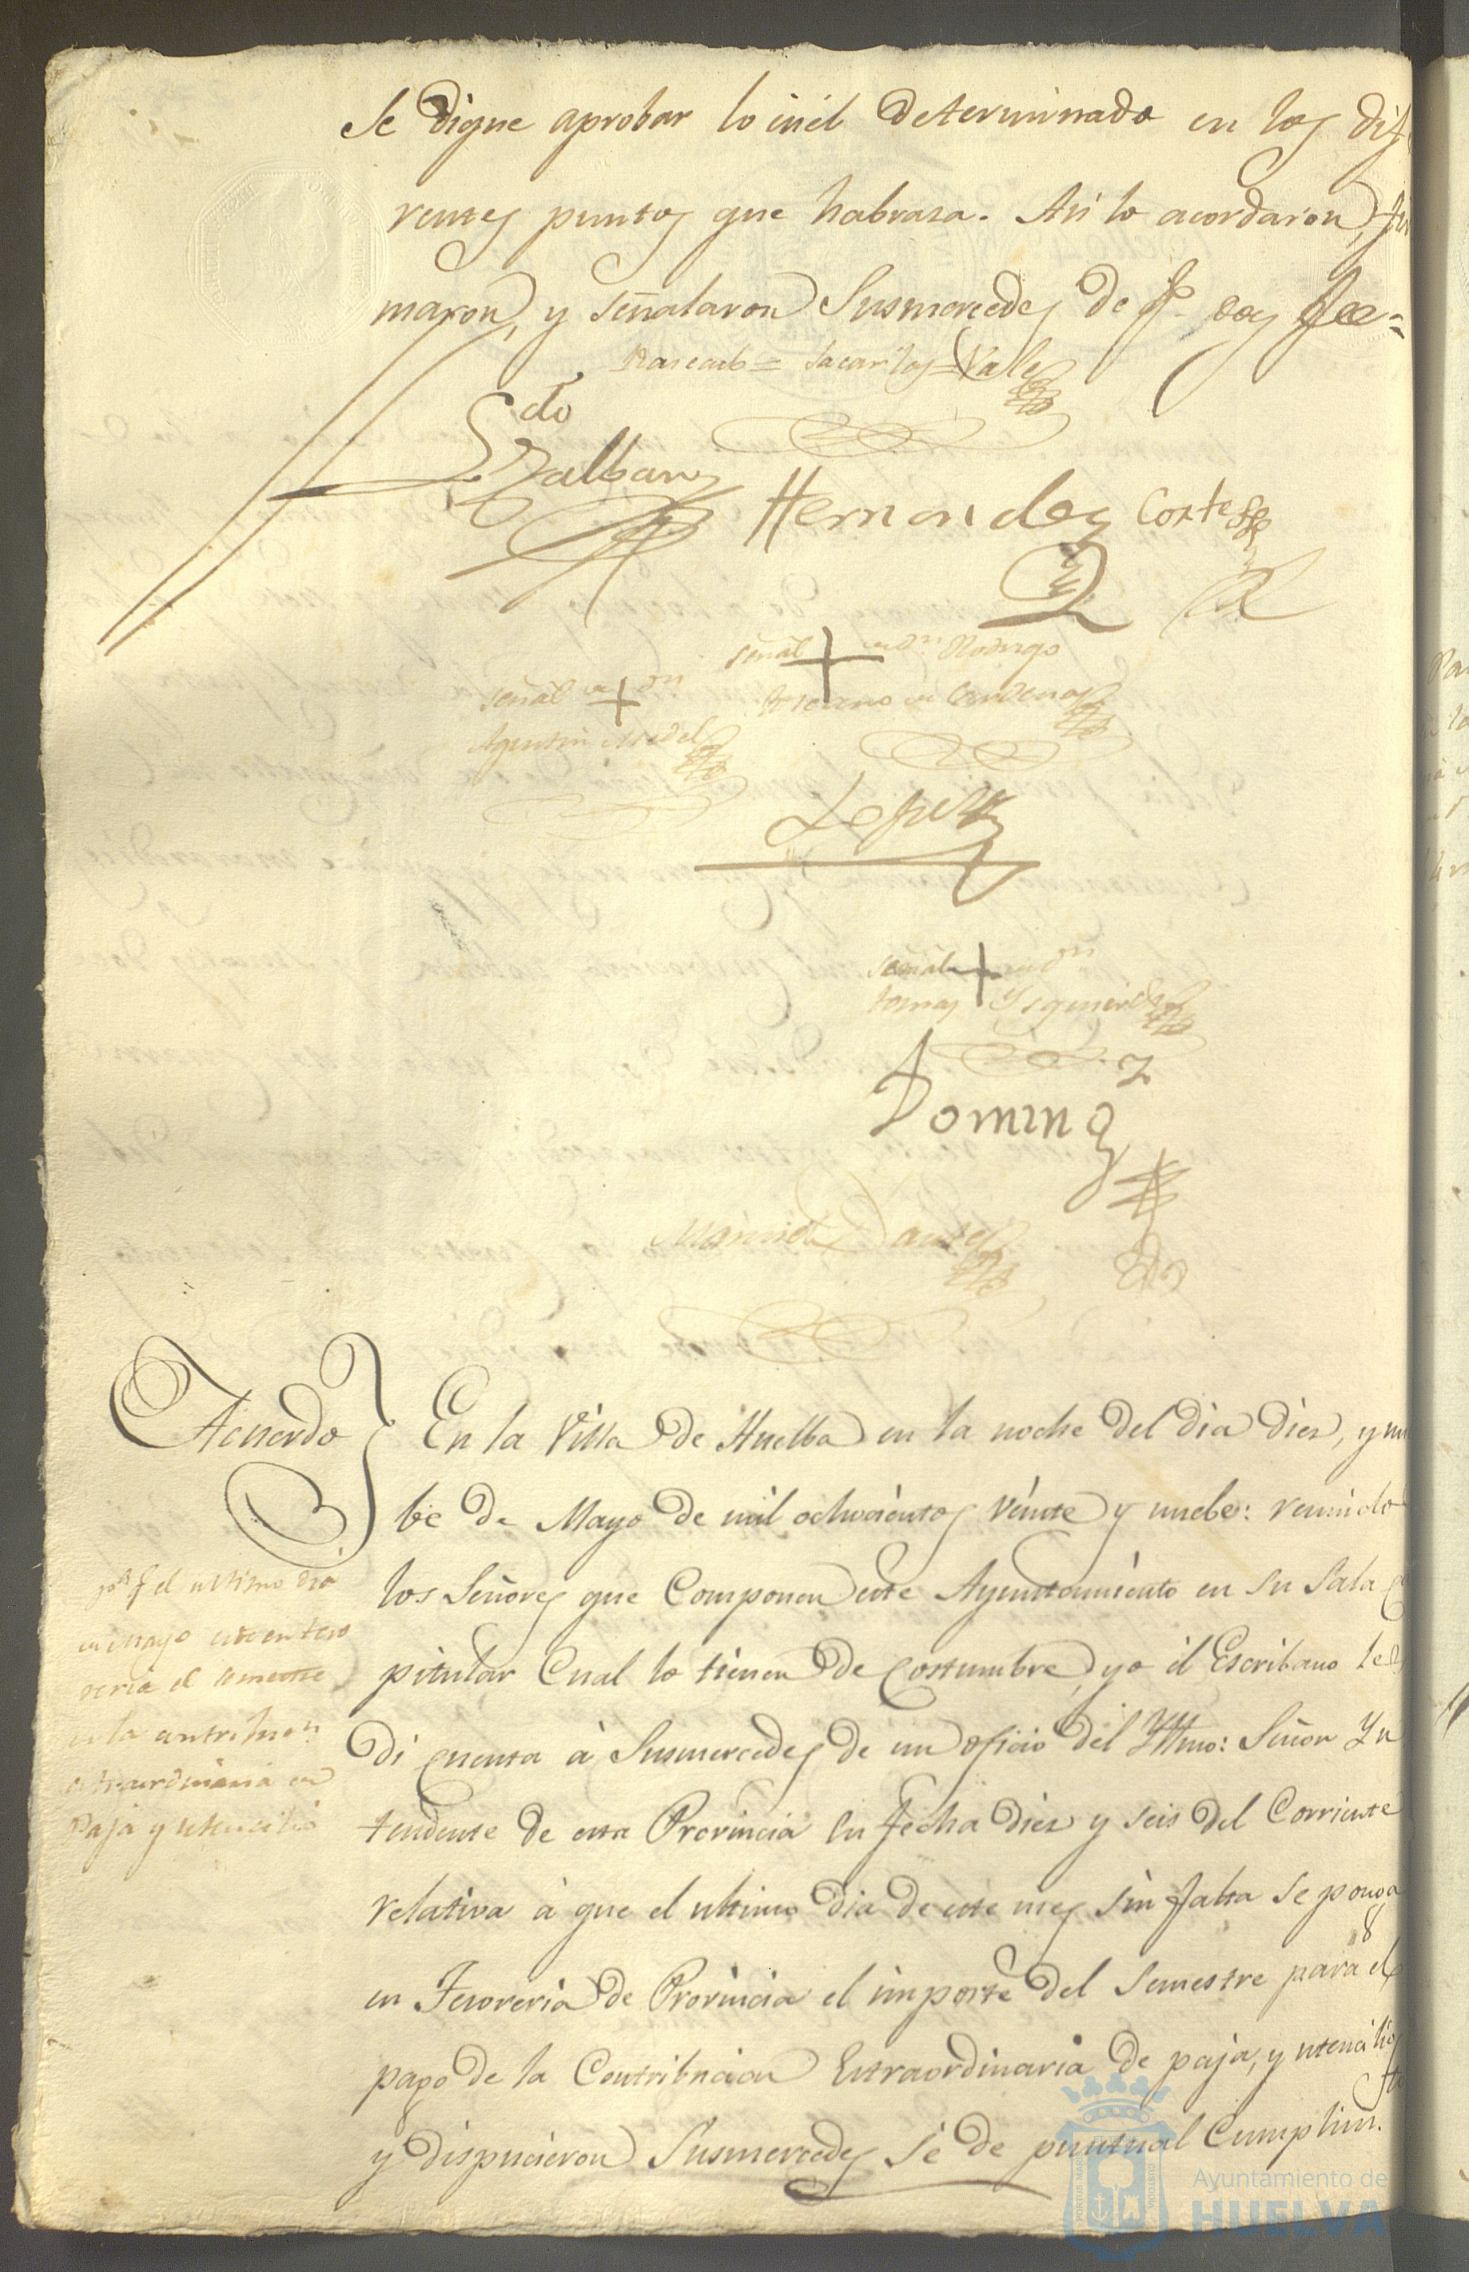 Se digne aprobar lo en el determinado en los dife
rentes puntos que habraza. Asi lo acordaron, fir
maron, y señalaron Susmercedes de q.e doy fee=
Raicado = Sacarlos = Vale
Ldo
Balbany
Hernandez Cortes
señal + de Dn Rodrigo
señal de + Dn
Moreno de Cardenas
Agustin Medel
Lopez
señal + de Dn
tomas Ysquierdo
Doming.z
Acuerdo
En la Villa de Huelba en la noche del dia diez, y nu
be de Mayo de mil ochocientos veinte y nuebe: reunido
los Señores que Componen este Ayuntamiento en su Sala Ca
pitular Cual lo tienen de Costumbre, yo el Escribano les
di cuenta à Susmercedes de un oficio del Yltmo: Señor Yn
tendente de esta Provincia su fecha diez y seis del Corriente
relativa à que el ultimo dia de este mes sin falta se ponga
en Tesoreria de Provincia el importe del Semestre para el
pago de la Contribucion Extraordinaria de paja, y utencilios
y dispucieron Susmercedes se de puntual Cumplim.to
pa. q.e el ultimo dia
de mayo este en teso
reria el semestre
de la contribuon
extraordinaria de
Paja y utencilio
Ayuntamiento de
HUELVA